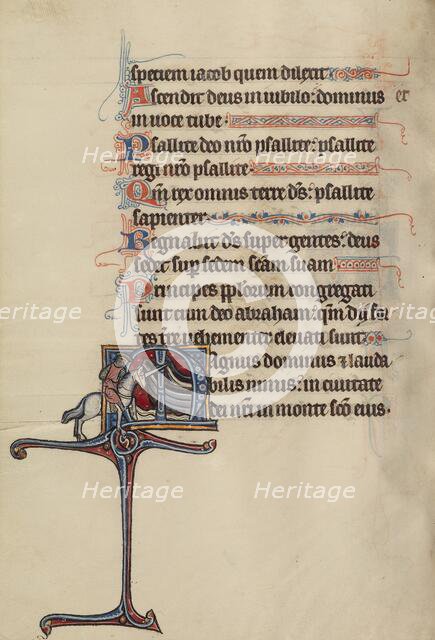 speciem iacob quem dilexit
Ascendit deus in iubilo: dominus
in uoce tube er
Psallite deo nr̃o psallite: psallite
regi nr̃o psallite
Qm̃ rex omnis terre ds̃: psallite
sapienter
Regnabit ds̃ super gentes: deus
sedet sup sedem sc̃am suam
Principes pp̃lorum congregati
sunt cum deo abraham: qm̃ dij for
tes terre uehementer eleuati sunt
Magnus dominus & lauda
bilis nimis: in ciuitate
dei nr̃i in monte sc̃o eius.
Heritage
Heritage
Heritage
Heritage
Heritage
Heritage